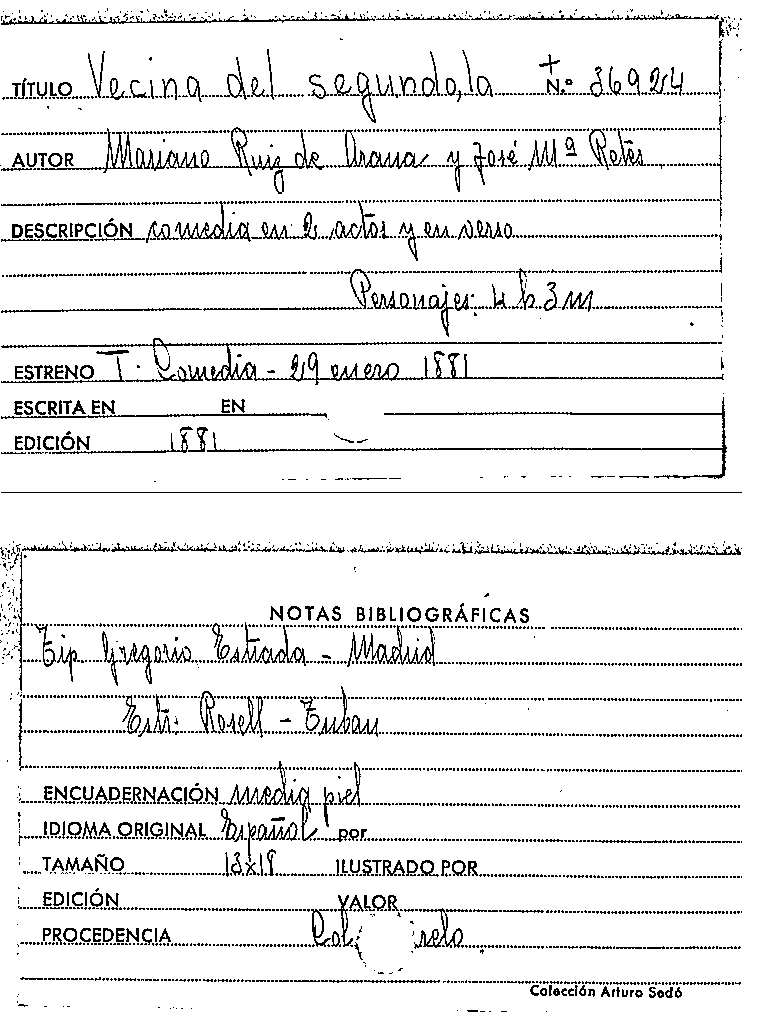 TÍTULO Vecina del segundo, la N.º 36924
AUTOR Mariano Ruiz de Arana y José Mª Retes
DESCRIPCIÓN comedia en 2 actos y en verso
Personajes: 4 h 3 m
ESTRENO T. Comedia - 29 enero 1881
ESCRITA EN EN
EDICIÓN 1881
NOTAS BIBLIOGRÁFICAS
Tip Gregorio Estrada - Madrid
Estr: Rosell - Tubau
ENCUADERNACIÓN media piel
IDIOMA ORIGINAL Español por
TAMAÑO 13x19 ILUSTRADO POR
EDICIÓN VALOR
PROCEDENCIA
Colección Arturo Sedó